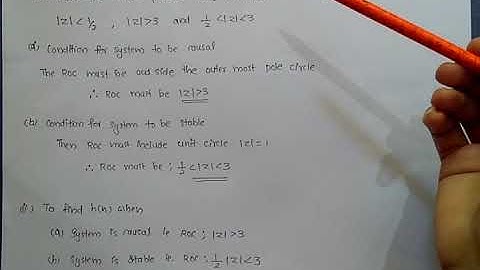 |z| < 1/2 , |z| > 3 and 1/2 < |z| < 3
(a) Condition for system to be causal
The ROC must be outside the outer most pole circle
∴ ROC must be |z| > 3
(b) Condition for system to be stable
Then ROC must include unit circle |z| = 1
∴ ROC must be ; 1/2 < |z| < 3
To find h(n) when
(a) System is causal i.e ROC ; |z| > 3
(b) System is Stable i.e ROC ; 1/2 |z| < 3